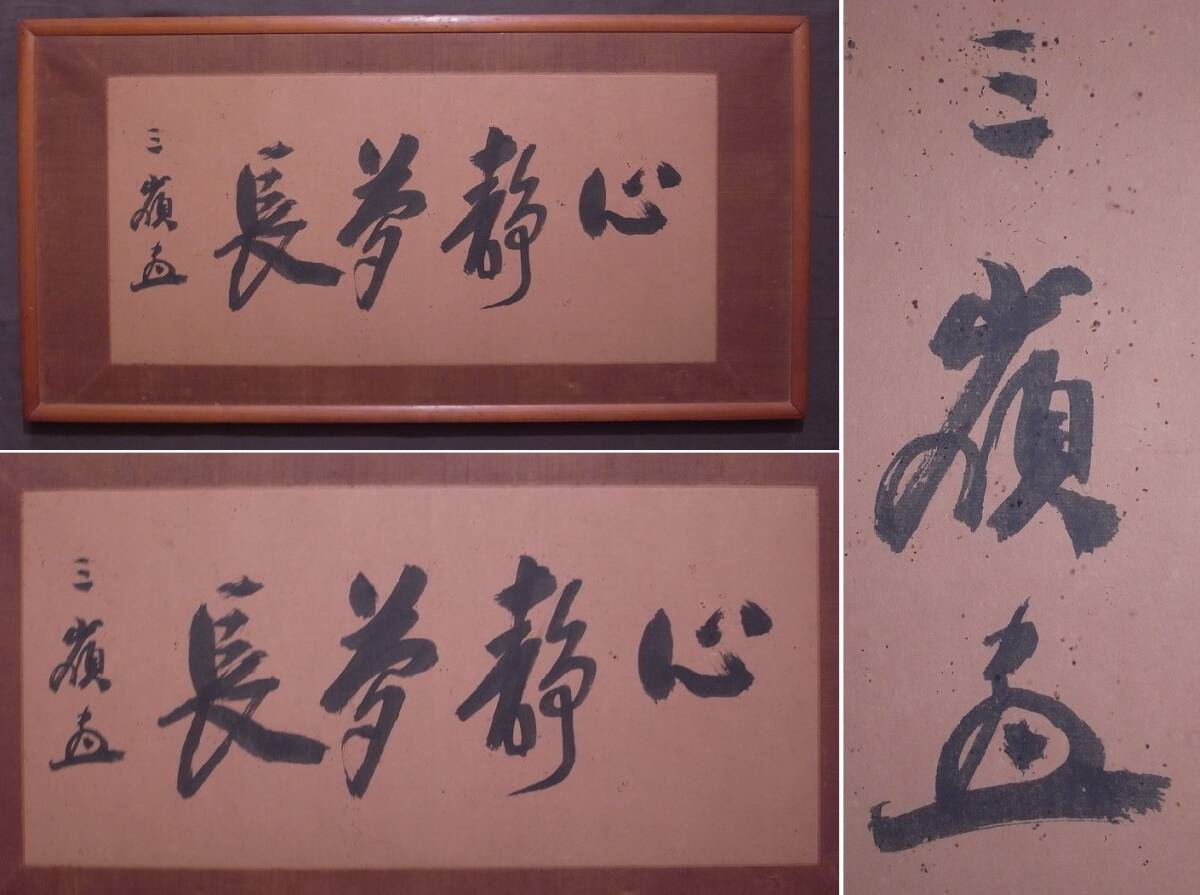 心静夢長
三嶺
心静夢長
三嶺
三嶺